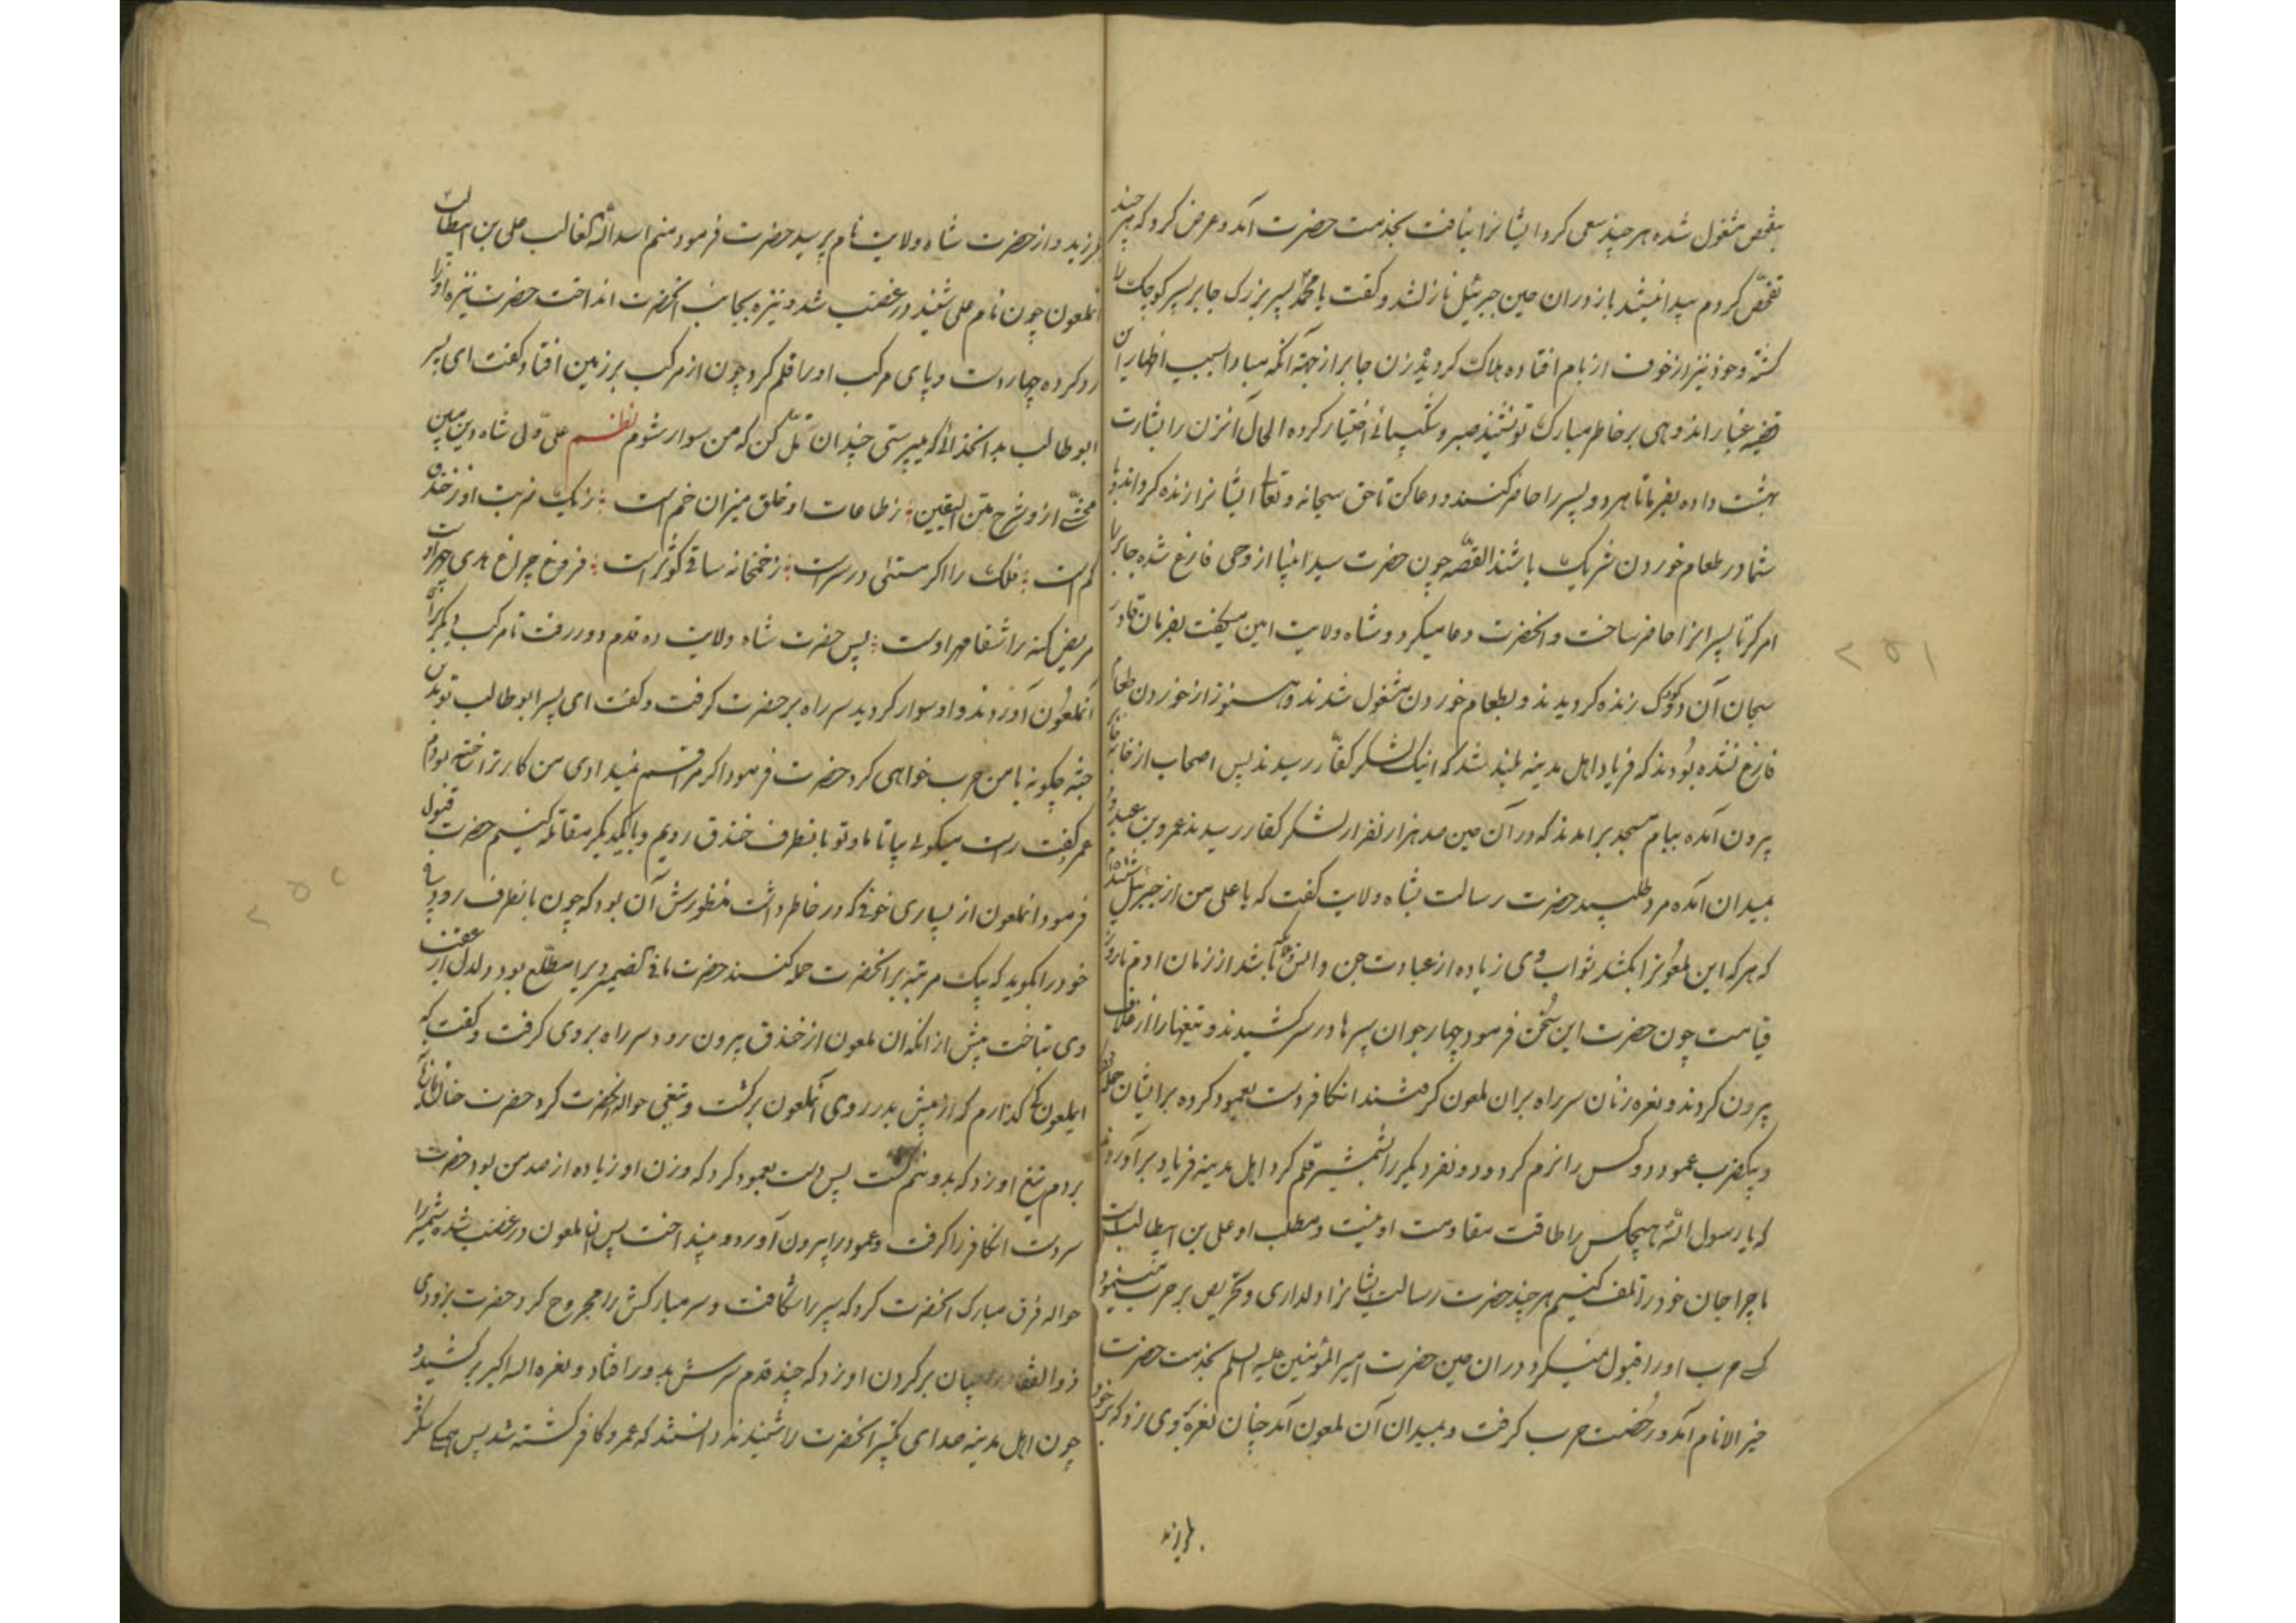 بتفحص مشغول شده هر چند سعی کرد ایشانرا نیافت بخدمت حضرت آمد و عرض کرد که هر چند
تفحّص کردم پیدا نیستند باز دران حین جبرئیل نازلشد و گفت یا محمّد پسر بزرک جابر پسر کوچک را
کشته و خود نیز از خوف از بام افتاده هلاک کردید زن جابر از جهة آنکه مبادا بسبب اظهار این
قضیه غبار اندوهی بر خاطر مبارک تو نشیند صبر و شکیبائی اختیار کرده الحال آنزن را بشارت
بهشت داده بفرما تا هر دو پسر را حاضر کنند و دعا کن تا حق سبحانه و تعالی ایشانرا زنده کرداند و با
شما در طعام خوردن شریک باشند القصّه چون حضرت سید انبیا از وحی فارغ شده جابر را
امر کرد تا پسرانرا حاضر ساخت و انحضرت دعا میکرد و شاه ولایت امین میکفت بفرمان قادر
سبحان آن دو کودک زنده کردیدند و بطعام خوردن مشغول شدند و هنوز از خوردن طعام
فارغ نشده بودند که فریاد اهل مدینه بلند شد که اینک لشکر کفّار رسیدند پس اصحاب از خانه جابر
بیرون آمده ببام مسجد برامدند که در آن حین صد هزار نفر از لشکر کفار رسیدند عمرو بن عبدود
بمیدان آمده مرد طلبید حضرت رسالت بشاه ولایت کفت که یا علی من از جبرئیل شنیدم
که هر که این ملعونرا بکشد ثواب وی زیاده از عبادت جن و انس باشد از زمان ادم تا روز
قیامت چون حضرت این سخن فرمود چهار جوان سپرها در سر کشیدند و تیغها را از غلاف
بیرون کردند و نعره زنان سر راه بران ملعون کرفتند انکافر دست بعمود کرده بر ایشان حمله کرد
و بیکضرب عمود دو کس را نرم کرد و دو نفر دیکر را بشمشیر قلم کرد اهل مدینه فریاد برآوردند
که یا رسول الله هیچکس را طاقت مقاومت او نیست و مطلب او علی بن ابیطالب است
ما چرا جان خود را تلف کنیم هر چند حضرت رسالت ایشانرا دلداری و تحریص بر حرب مینمود
کسی حرب او را قبول نمیکرد دران حین حضرت امیر المؤمنین علیه السلم بخدمت حضرت
خیر الانام آمد و رخصت حرب کرفت و بمیدان آن ملعون آمد چنان نعره بر وی زد که بر خود
بلرزید
۲۵۱
بلرزید و از حضرت شاه ولایت نام پرسید حضرت فرمود منم اسد الله الغالب علی بن ابیطالب
انملعون چون نام علی شنید در غضب شد و نیزه بجانب انحضرت انداخت حضرت نیزه او را
رد کرده چهار دست و پای مرکب او را قلم کرد چون از مرکب بر زمین افتاد کفت ای پسر
ابو طالب بدانخدائی که میپرستی چندان تأمل کن که من سوار شوم نظم علی ولی شاه دین مبین
محشّی ازو شرح متن الیقین ؛ ز طاعات او خلق میزان خم است ؛ ز یک ضربت او ز خندق
کم است ؛ فلک را اکر مستئی در سر است ؛ ز خمخانه ساقی کوثر است ؛ فروغ چراغ هدی چهر اوست
مریض کنه را شفا مهر اوست ؛ پس حضرت شاه ولایت ده قدم دور رفت تا مرکب دیکر برای
آنملعون آوردند و او سوار کردید سر راه بر حضرت کرفت و کفت ای پسر ابو طالب تو بدین
جثه چکونه با من حرب خواهی کرد حضرت فرمود اکر مرا قسم نمیدادی من کار ترا ساخته بودم
عمرو کفت راست میکوئی بیا تا ما و تو بانطرف خندق رویم و با یکدیکر مقاتله کنیم حضرت قبول
فرمود انملعون از بسیاری خوفی که در خاطر داشت منظورش آن بود که چون بانطرف رود
خود را بکوید که بیک مرتبه بر انحضرت حمله کنند حضرت ما فی الضمیر ویرا مطّلع بود دلدل از عقب
وی بتاخت پیش از انکه ان ملعون از خندق بیرون رود سر راه بر وی کرفت و کفت که
ایملعون کی کذارم که از پیش بدر روی آنملعون برکشت و تیغی حواله انحضرت کرد حضرت
بر دم تیغ او زد که بدو نیم کشت پس دست بعمود کرد که وزن او زیاده از صد من بود حضرت
سر دست انکافر را کرفت و عمود را بیرون آورد و بینداخت پس انملعون در غضب شده شمشیر را
حواله فرق مبارک انحضرت کرد که سپر را شکافت و سر مبارکش را مجروح کرد حضرت بزودی
ذو الفقار چنان بر کردن او زد که چند قدم سرش بدور افتاد و نعره الله اکبر بر کشید و
چون اهل مدینه صدای تکبیر انحضرت را شنیدند دانستند که عمرو کافر کشته شد پس